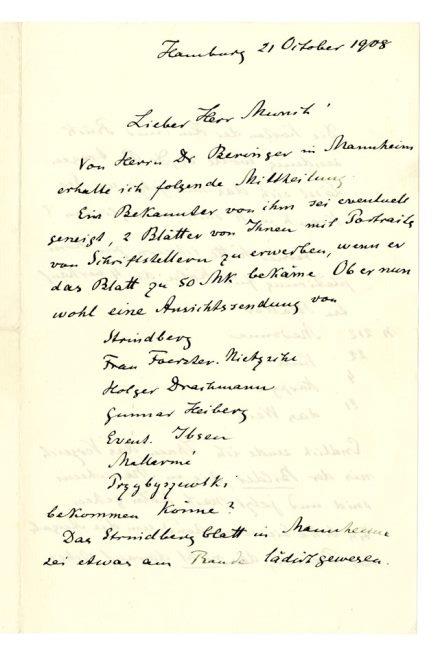 Hamburg 21 October 1908
Lieber Herr Munch!
Von Herrn Dr Beringer in Mannheim
erhalte ich folgende Mittheilung.
Ein Bekannter von ihm sei eventuell
geneigt, 2 Blätter von Ihnen mit Portraits
von Schriftstellern zu erwerben, wenn er
das Blatt zu 50 Mk bekäme. Ob er nun
wohl eine Ansichtssendung von
Strindberg
Frau Foerster-Nietzsche
Holger Drachmann
Gunnar Heiberg
Event. Ibsen
Mallarmé
Przybyszewski
bekommen könne?
Das Strindbergblatt in Mannheim
sei etwas am Rande lädirt gewesen.